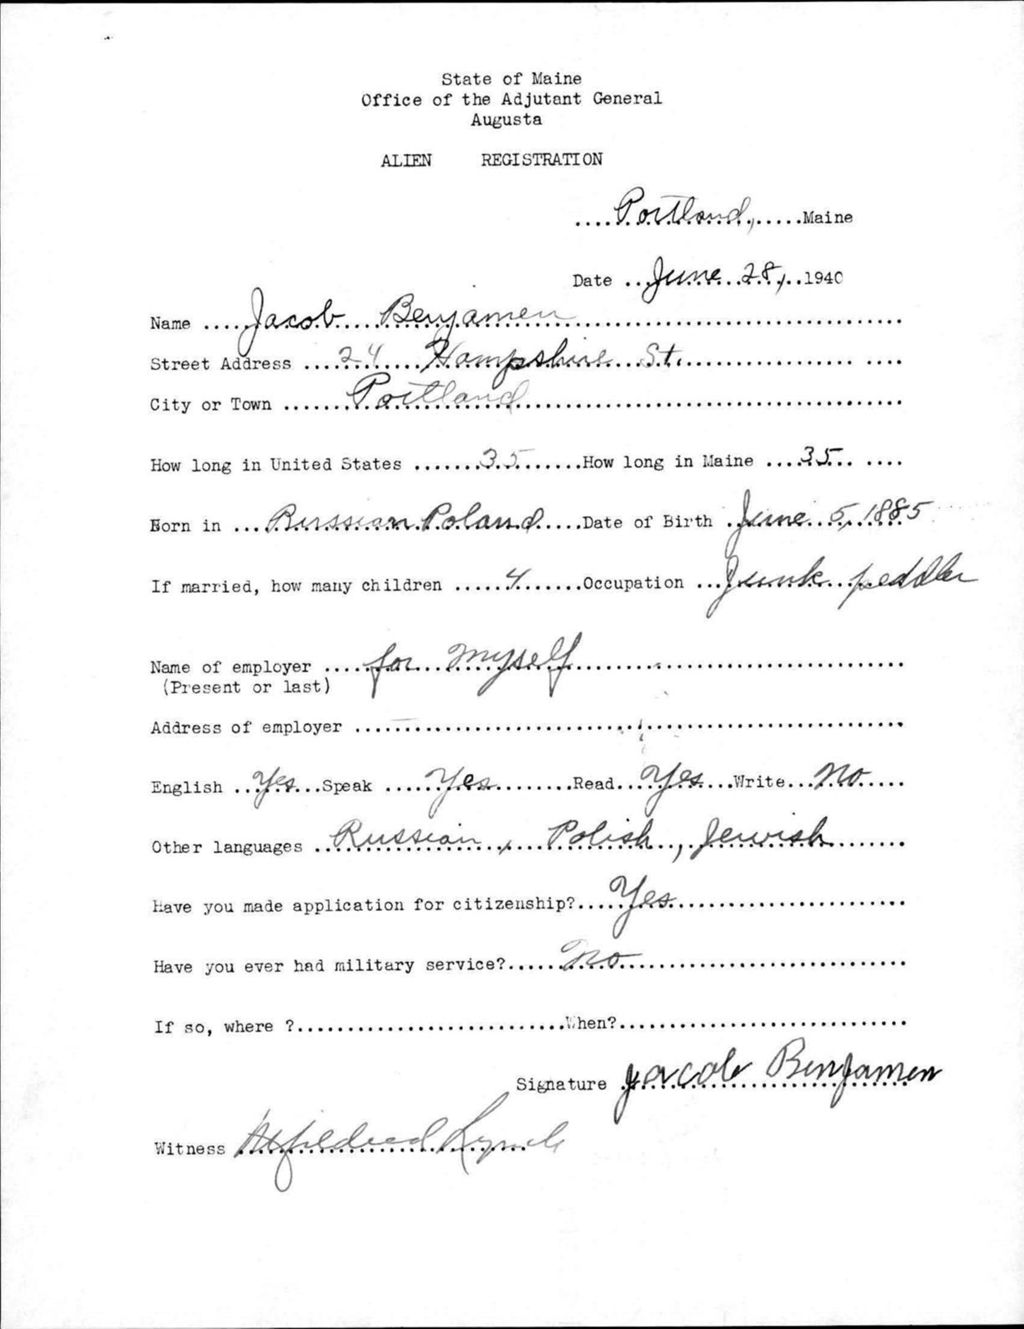 State of Maine
Office of the Adjutant General
Augusta
ALIEN REGISTRATION
....Portland,.....Maine
Date ..June 28,..1940
Name ....Jacob Benjamen
Street Address ....24 Hampshire St.
City or Town ......Portland
How long in United States .......35.......How long in Maine ....35.. ....
Born in ...Russian Poland.....Date of Birth .June 5, 1885
If married, how many children .....4.......Occupation ...Junk peddler
Name of employer ....for myself
(Present or last)
Address of employer
English ..Yes...Speak .....Yes.........Read....Yes....Write...No.....
Other languages ..Russian, Polish, Jewish
Have you made application for citizenship?....Yes
Have you ever had military service?......No
If so, where ?...........................When?
Signature Jacob Benjamen
Witness Lynch